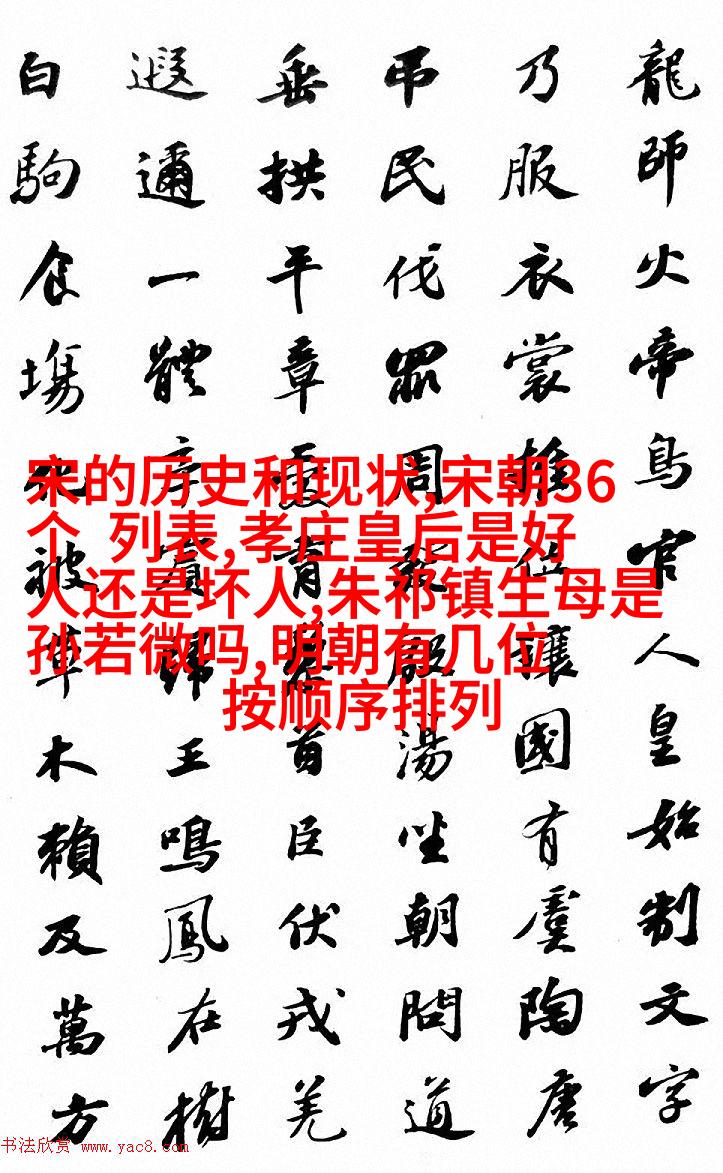 龍師火帝鳥官人皇始制文字
乃服衣裳推位讓國有虞陶唐
弔民伐罪周發殷湯坐朝問道
垂拱平章愛育黎首臣伏戎羌
遐邇一體率賓歸王鳴鳳在樹
白駒食場化被草木賴及萬方
宋的历史和现状,宋朝36
个 列表,孝庄皇后是好
人还是坏人,朱祁镇生母是
孙若微吗,明朝有几位
按顺序排列
书法欣赏 www.yac8.com